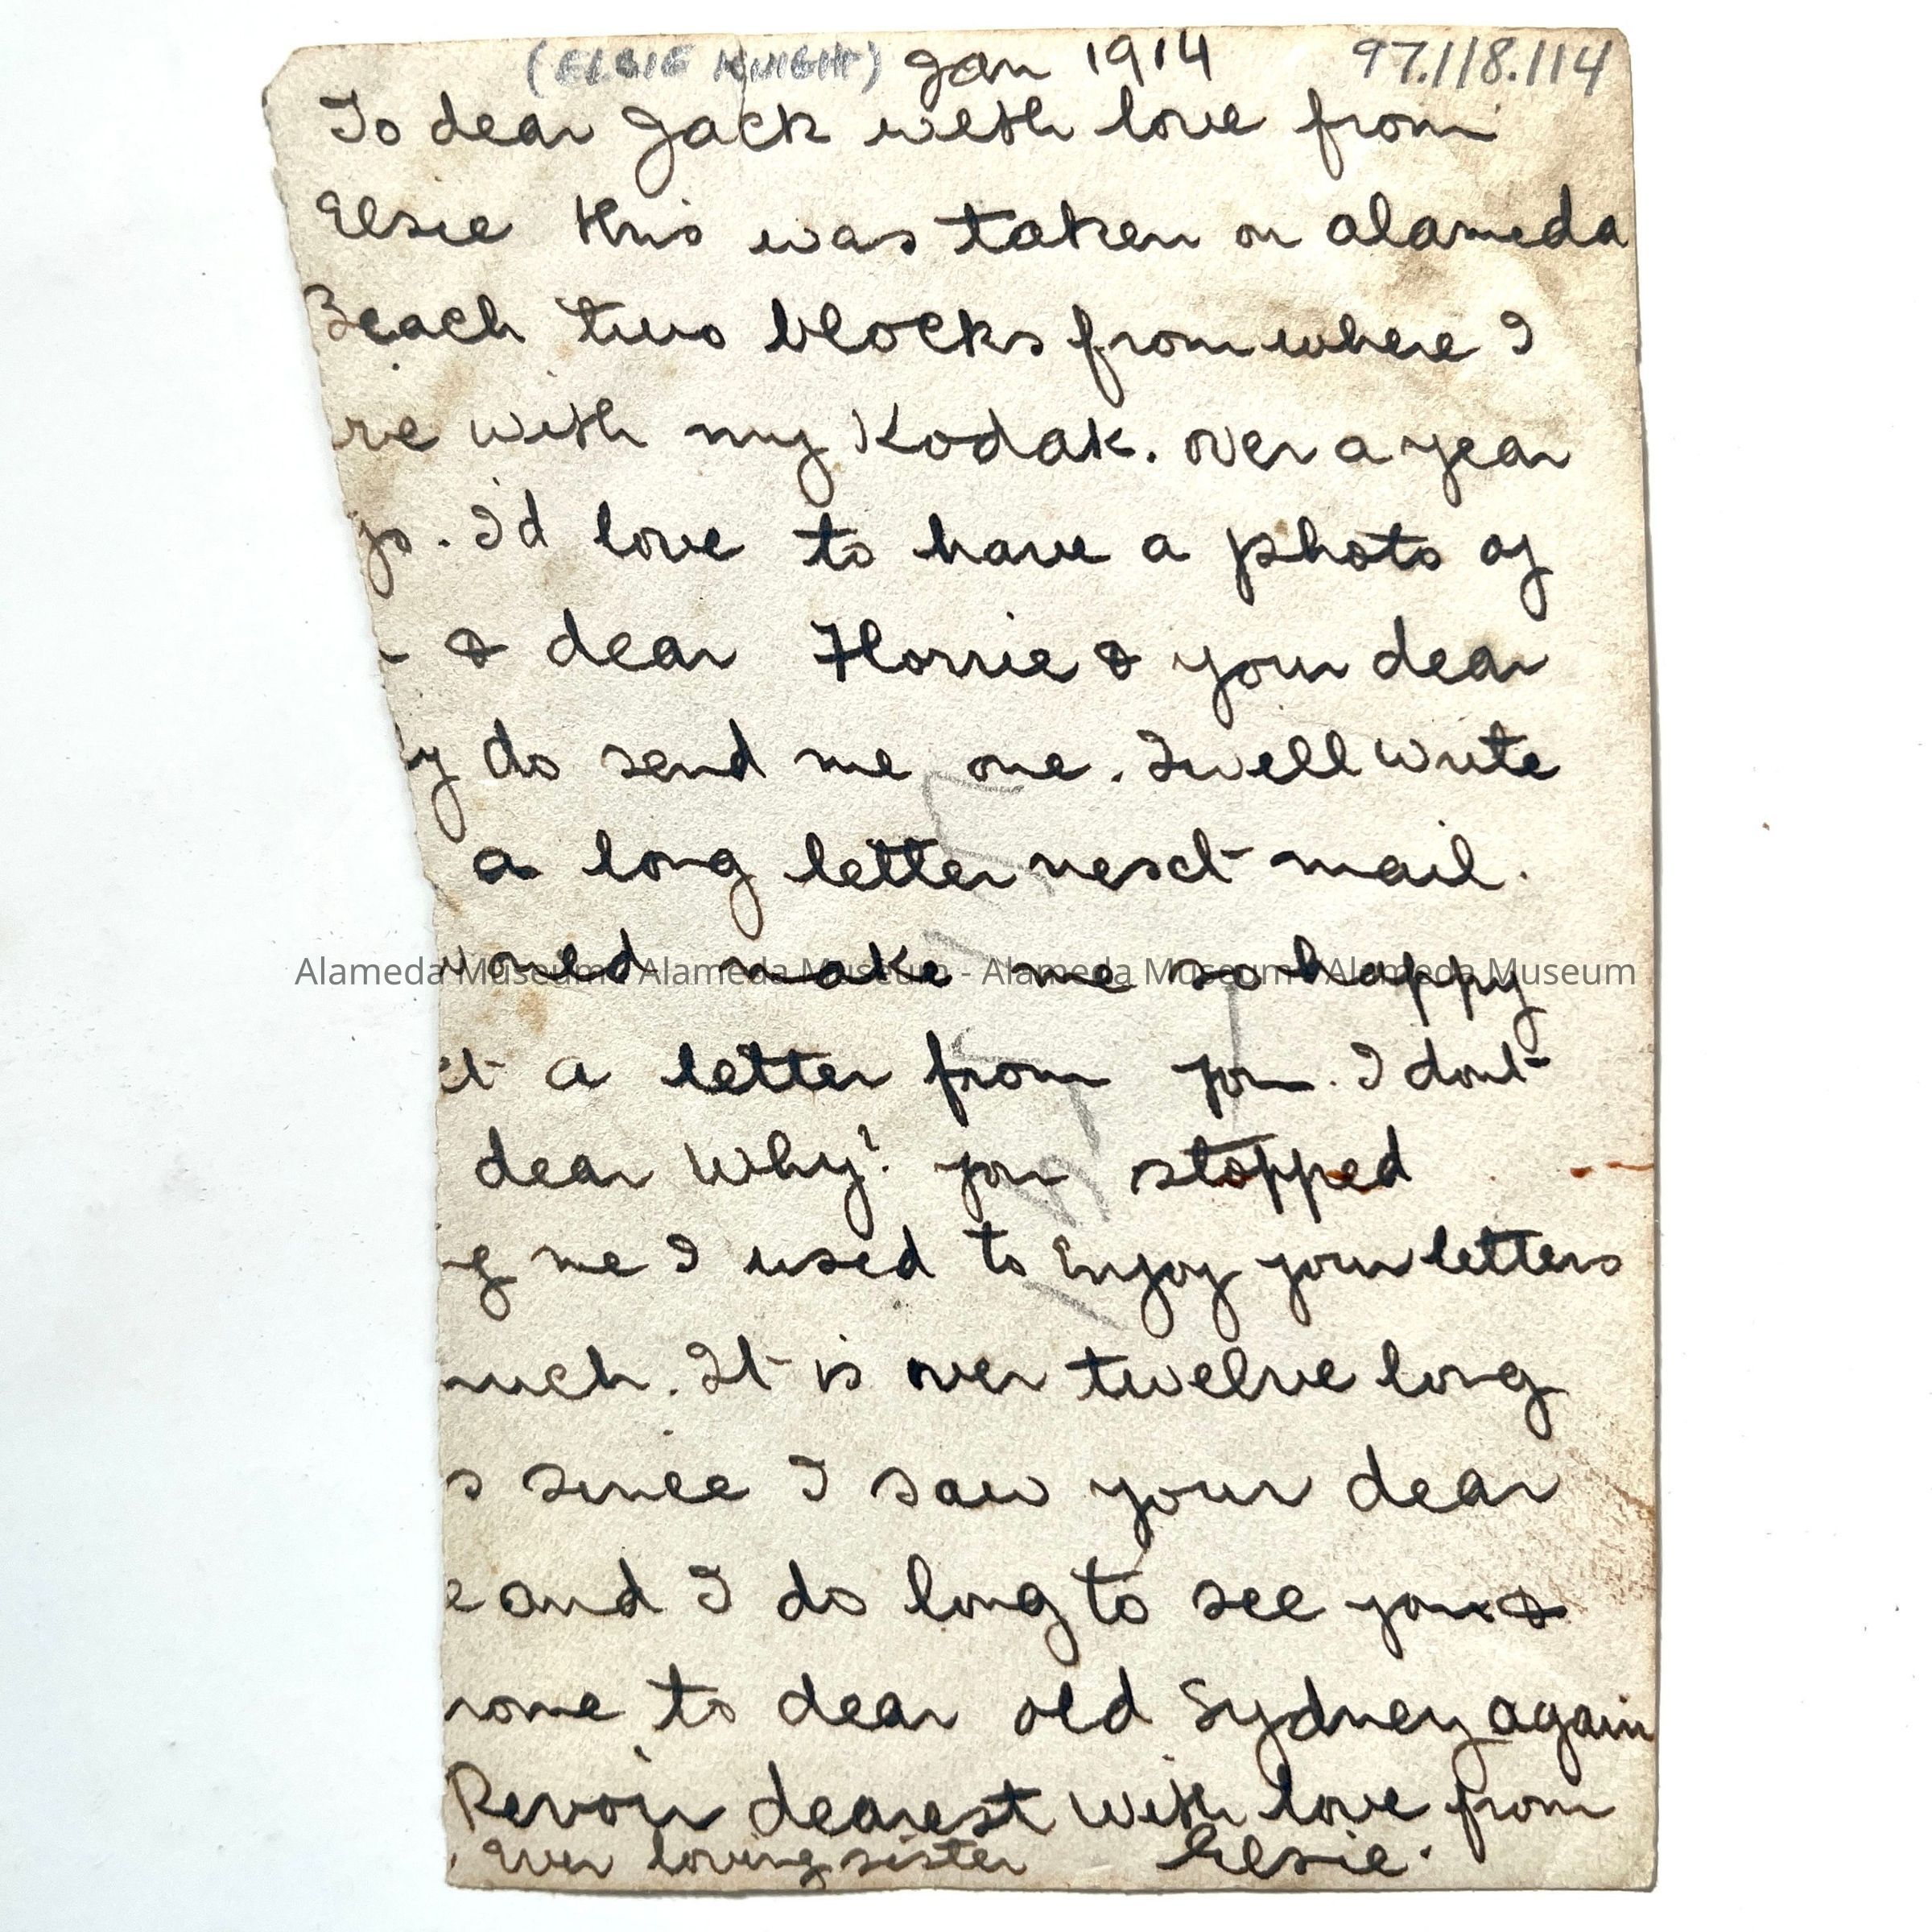 (ELSIE KNIGHT) Jan 1914 97.118.114
To dear Jack with love from
Elsie this was taken on alameda
Beach two blocks from where I
ve with my Kodak. over a year
go. I'd love to have a photo of
& dear Florrie & your dear
do send me one. I will write
a long letter next mail.
would make me so happy
a letter from you. I dont
dear Why? you stopped
g me I used to Enjoy your letters
much. It is over twelve long
s since I saw your dear
e and I do long to see you &
home to dear old Sydney again
Revoir dearest with love from
Ever loving sister Elsie.
Alameda Museum - Alameda Museum - Alameda Museum - Alameda Museum